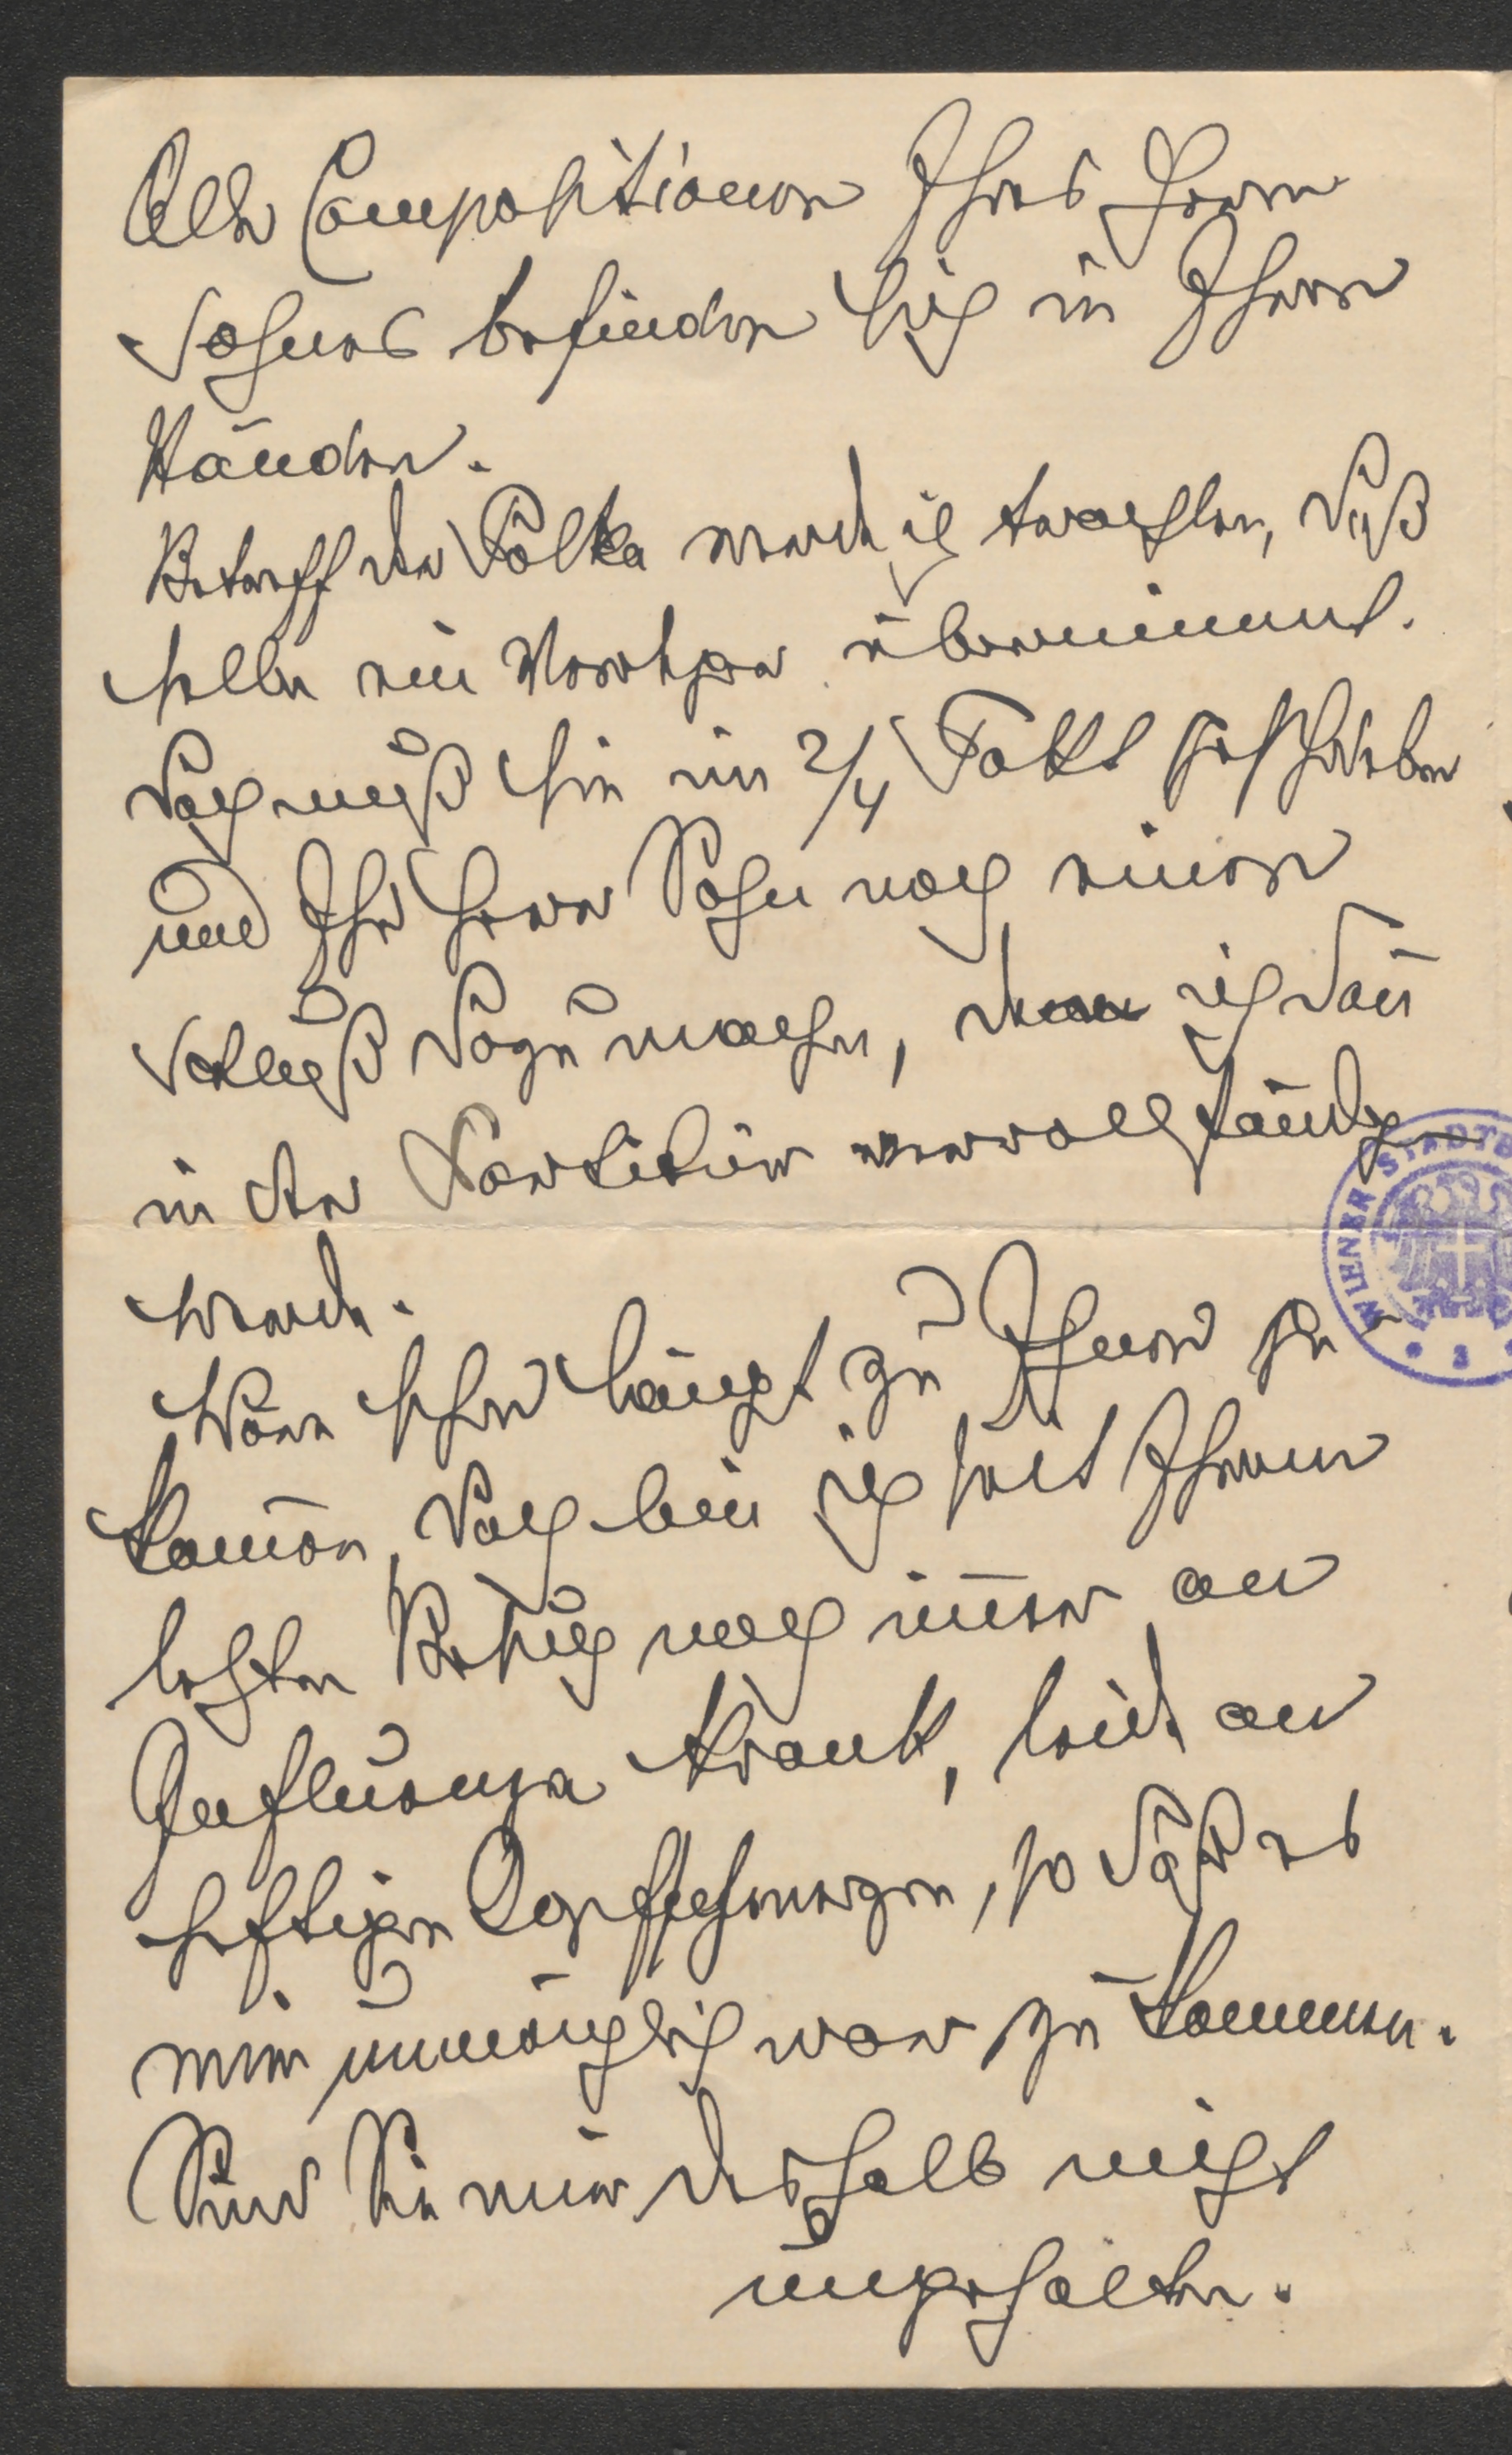 Alle Compositionen Ihres Herrn
Sohnes befinden sich in Ihren
Händen.
Betreff der Polka werde ich trachten, daß
selbe ein Verleger übernimmt.
Doch muß sie im 2/4 Takt geschrieben
und Ihr Herr Sohn noch einen
Schluß dazu machen, den ich dan̄
in der Partitur vervollständigen
werde.
Wäre schon längst zu Ihnen ge-
kom̄en, doch bin ich seit Ihrem
letzten Besuch noch im̄er an
Influenza krank, leide an
heftigen Kopfschmerzen, so daß es
mir unmöglich war zu kommen.
Sind Sie mir deshalb nicht
ungehalten.
WIENER STADTB